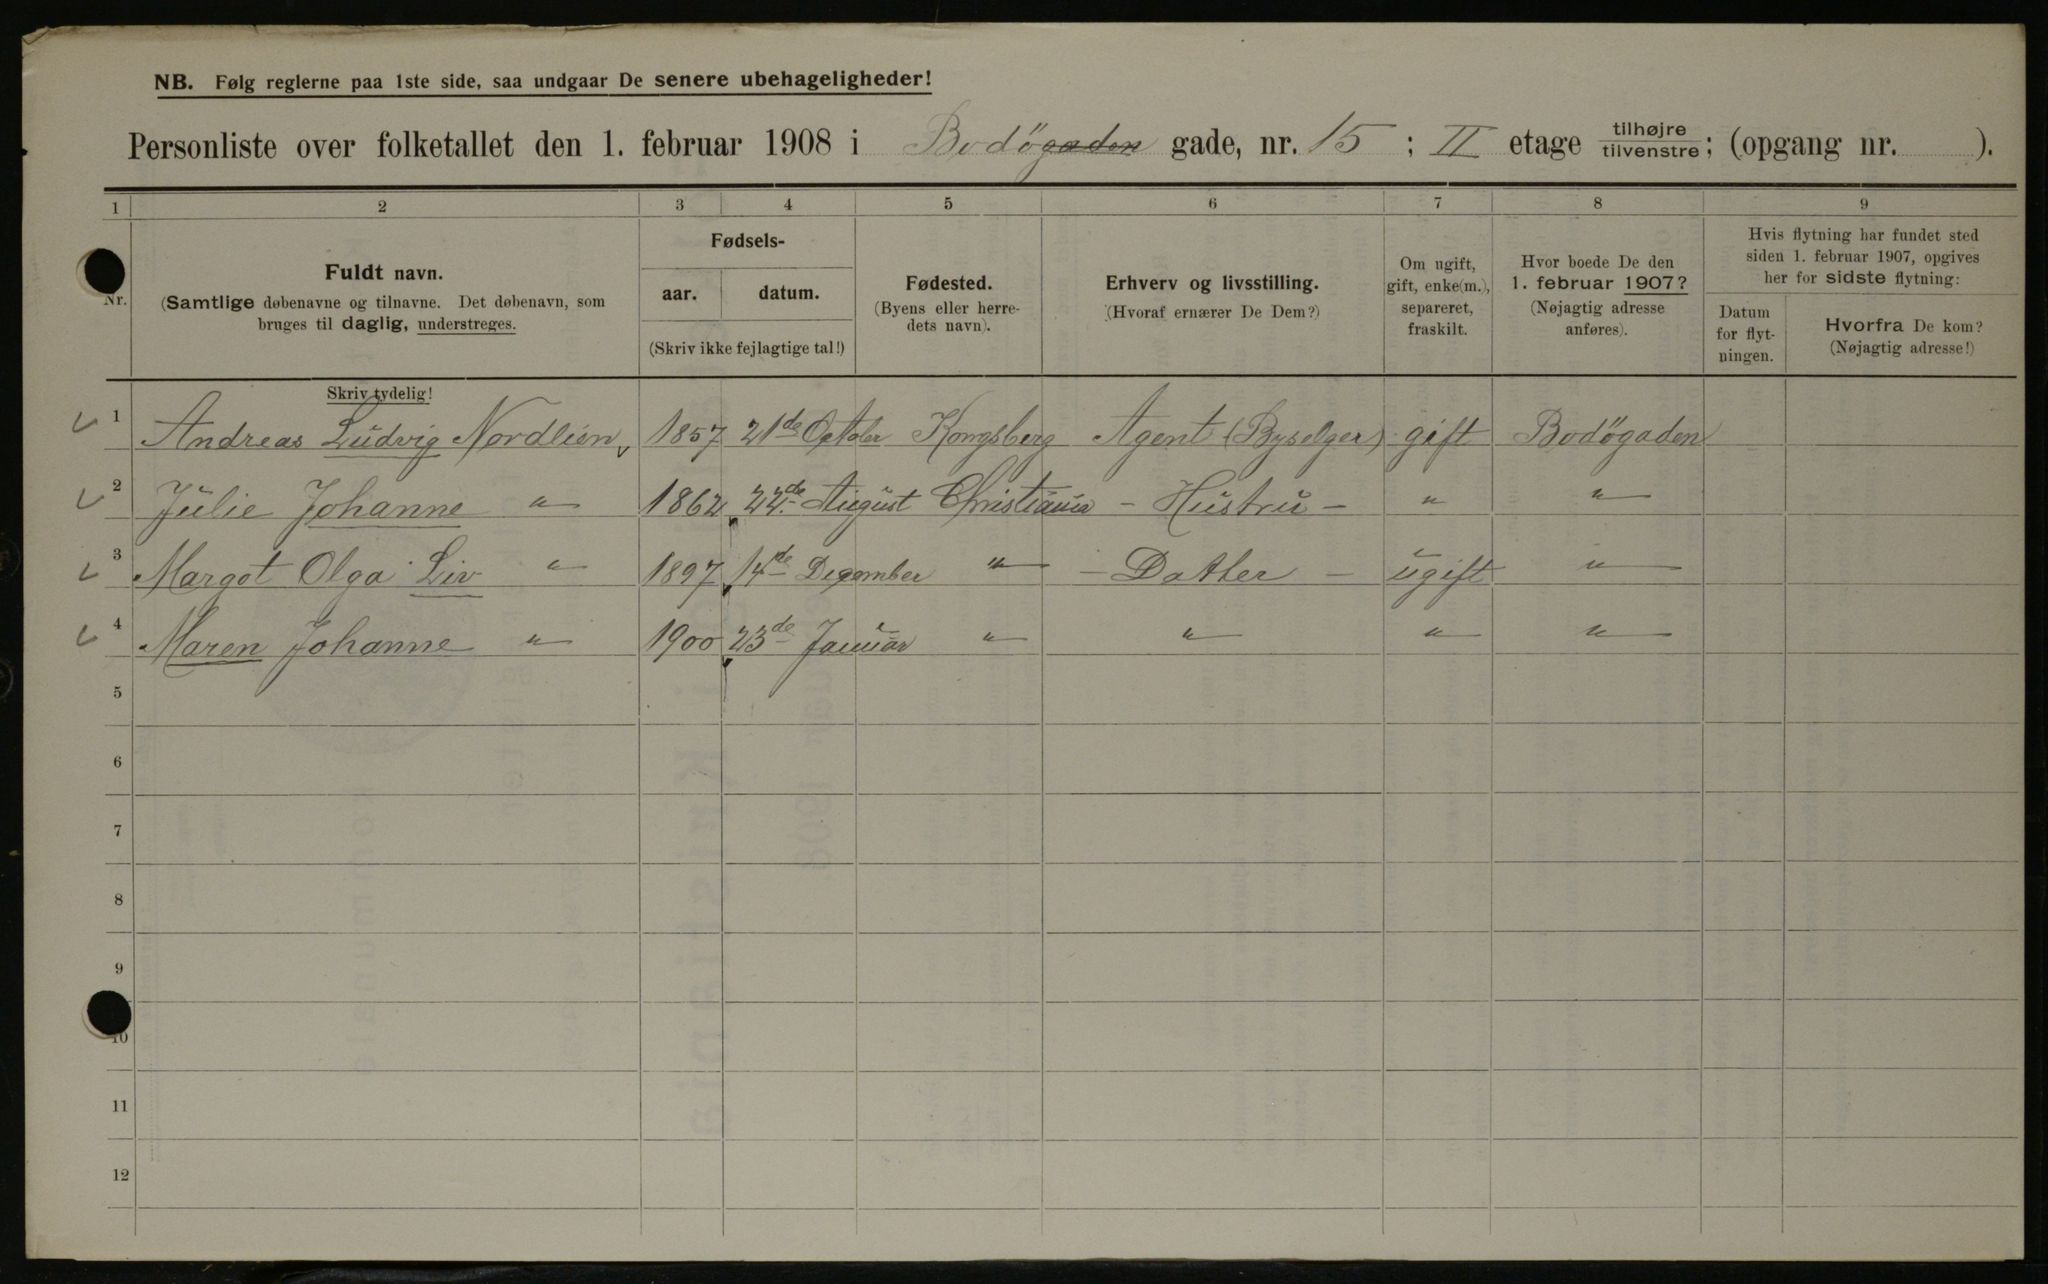 NB. Følg reglerne paa 1ste side, saa undgaar De senere ubehageligheder!
Personliste over folketallet den 1. februar 1908 i Bodögaden gade, nr. 15 ; II etage tilhøjre tilvenstre ; (opgang nr. ).
1 2 3 4 5 6 7 8 9
Nr.
Fuldt navn.
(Samtlige døbenavne og tilnavne. Det døbenavn, som
bruges til daglig, understreges.
Skriv tydelig!
Fødsels-
aar. datum.
(Skriv ikke fejlagtige tal!)
Fødested.
(Byens eller herre-
dets navn).
Erhverv og livsstilling.
(Hvoraf ernærer De Dem?)
Om ugift,
gift, enke(m.),
separeret,
fraskilt.
Hvor boede De den
1. februar 1907?
(Nøjagtig adresse
anføres).
Hvis flytning har fundet sted
siden 1. februar 1907, opgives
her for sidste flytning:
Datum
for flyt-
ningen.
Hvorfra De kom?
(Nøjagtig adresse!)
1 Andreas Ludvig Nordlien, 1857 21de October Kongsberg Agent (Byselger) gift Bodögaden
2 Julie Johanne " 1862 22de August Christiania - Hustru - " "
3 Margot Olga Liv " 1897 14de December " - Datter - ugift "
4 Maren Johanne " 1900 23de Januar " " " "
5
6
7
8
9
10
11
12